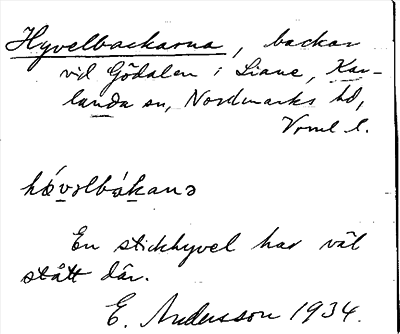 Hyvelbackarna, backar
vid Gödalen i Liane, Kar-
landa sn, Nordmarks hd,
Vrml l.
hǿvəlbákanə
En stickhyvel har väl
stått där.
E. Andersson 1934.